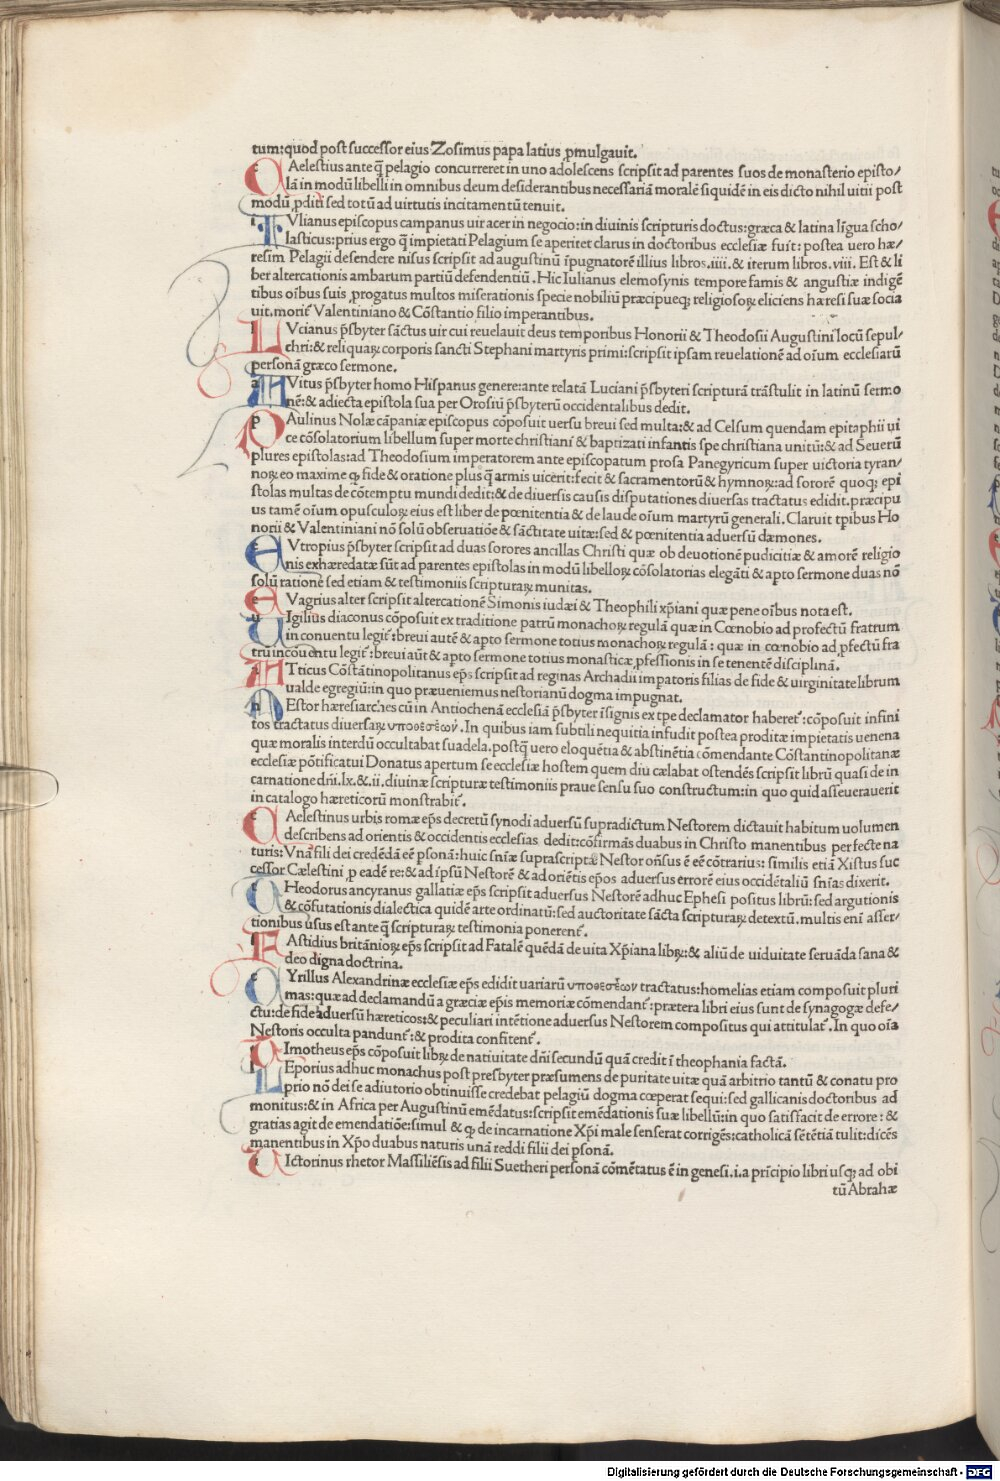 tum:quod post successor eius Zosimus papa latius ꝓmulgauit.
CAelestius ante q̄ pelagio concurreret in uno adolescens scripsit ad parentes suos de monasterio episto/
lā in modū libelli in omnibus deum desiderantibus necessariā moralē siquidē in eis dicto nihil uitii post
modū ꝓdiit sed totū ad uirtutis incitamentū tenuit.
IVlianus episcopus campanus uir acer in negocio:in diuinis scripturis doctus:græca & latina līgua scho/
lasticus:prius ergo q̄ impietatī Pelagium se aperiret clarus in doctoribus ecclesiæ fuit: postea uero hæ/
resim Pelagii defendere nisus scripsit ad augustinū īpugnatorē illius libros.iiii.& iterum libros.viii. Est & li
ber altercationis ambarum partiū defendentiū. Hic Iulianus elemosynis tempore famis & angustiæ indigē
tibus oībus suis ꝓrogatus multos miserationis specie nobiliū præcipueqꝫ religiosoꝝ eliciens hæresi suæ socia
uit.morit᷑ Valentiniano & Cōstantio filio imperantibus.
LVcianus p̄sbyter sāctus uir cui reuelauit deus temporibus Honorii & Theodosii Augustini locū sepul/
chri:& reliquaꝝ corporis sancti Stephani martyris primi:scripsit ipsam reuelationē ad oīum ecclesiarū
personā græco sermone.
AVitus p̄sbyter homo Hispanus genere:ante relatā Luciani p̄sbyteri scripturā trāstulit in latinū sermo
nē:& adiecta epistola sua per Orosiū p̄sbyterū occidentalibus dedit.
PAulinus Nolæ cāpaniæ episcopus cōposuit uersu breui sed multa:& ad Celsum quendam epitaphii ui
ce cōsolatorium libellum super morte christiani & baptizati infantis spe christiana unitū:& ad Seuerū
plures epistolas:ad Theodosium imperatorem ante episcopatum prosa Panegyricum super uictoria tyran/
noꝝ eo maxime ꝙ fide & oratione plus q̄ armis uicerit:fecit & sacramentorū & hymnoꝝ:ad sororē quoqꝫ epi
stolas multas de cōtemptu mundi dedit:& de diuersis causis disputationes diuersas tractatus edidit.præcipu
us tamē oīum opusculoꝝ eius est liber de pœnitentia & de laude oīum martyrū generali. Claruit tp̄ibus Ho
norii & Valentiniani nō solū obseruatiōe & sāctitate uitæ:sed & pœnitentia aduersū dæmones.
EVtropius p̄sbyter scripsit ad duas sorores ancillas Christi quæ ob deuotionē pudicitiæ & amorē religio
nis exhæredatæ sūt ad parentes epistolas in modū libelloꝝ cōsolatorias elegāti & apto sermone duas nō
solū ratione sed etiam & testimoniis scripturaꝝ munitas.
EVagrius alter scripsit altercationē Simonis iudæi & Theophili xp̄iani quæ pene oībus nota est.
VIgilius diaconus cōposuit ex traditione patrū monachoꝝ regulā quæ in Cœnobio ad profectū fratrum
in conuentu legit᷑:breui autē & apto sermone totius monachoꝝ regulā: quæ in cœnobio ad ꝓfectū fra
trū in cōuentu legit᷑:breui aūt & apto sermone totius monasticæ ꝓfessionis in se tenentē disciplinā.
ATticus Cōstātinopolitanus ep̄s scripsit ad reginas Archadii impatoris filias de fide & uirginitate librum
ualde egregiū:in quo præueniemus nestorianū dogma impugnat.
NEstor hæresiarches cū in Antiochenā ecclesiā p̄sbyter īsignis ex tpe declamator haberet᷑:cōposuit infini
tos tractatus diuersaꝝ υποθεσεων. In quibus iam subtili nequitia infudit postea proditæ impietatis uenena
quæ moralis interdū occultabat suadela.postq̄ uero eloquētia & abstinētia cōmendante Cōstantinopolitanæ
ecclesiæ pōtificatui Donatus apertum se ecclesiæ hostem quem diu cælabat ostendēs scripsit librū quasi de in
carnatione dn̄i.lx.& .ii.diuinæ scripturæ testimoniis praue sensu suo constructum:in quo quid asseuerauerit
in catalogo hæreticorū monstrabit᷑.
CAelestinus urbis romæ ep̄s decretū synodi aduersū supradictum Nestorem dictauit habitum uolumen
describens ad orientis & occidentis ecclesias dedit:cōfirmās duabus in Christo manentibus perfecte na
turis:Vnā fili dei credēdā eē ꝑsonā:huic sn̄iæ suprascriptæ Nestor on̄sus ē eē cōtrarius: similis etiā Xistus suc
cessor Cælestini ꝓ eadē re:& ad ipsū Nestorē & ad oriētis ep̄os aduersus errorē eius occidētaliū sn̄ias dixerit.
THeodorus ancyranus gallatiæ ep̄s scripsit aduersus Nestorē adhuc Ephesi positus librū: sed argutionis
& cōfutationis dialectica quidē arte ordinatū:sed auctoritate sācta scripturaꝝ detextū.multis eni asser/
tionibus usus est ante q̄ scripturaꝝ testimonia poneret᷑.
FAstidius britānioꝝ ep̄s scripsit ad Fatalē quēdā de uita Xp̄iana libꝝ:& aliū de uiduitate seruāda sana &
deo digna doctrina.
CYrillus Alexandrinæ ecclesiæ ep̄s edidit uariarū υποθεσεων tractatus:homelias etiam composuit pluri
mas:quæ ad declamandū a græciæ ep̄is memoriæ cōmendant᷑:prætera libri eius sunt de synagogæ defe/
ctu:de fide aduersū hæreticos:& peculiari intētione aduersus Nestorem compositus qui attitulat᷑. In quo oīa
Nestoris occulta pandunt᷑:& prodita confitent᷑.
TImotheus ep̄s cōposuit libꝝ de natiuitate dn̄i secundū quā credit ī theophania factā.
LEporius adhuc monachus post presbyter præsumens de puritate uitæ quā arbitrio tantū & conatu pro
prio nō dei se adiutorio obtinuisse credebat pelagiū dogma cœperat sequi:sed gallicanis doctoribus ad
monitus:& in Africa per Augustinū emēdatus:scripsit emēdationis suæ libellū:in quo satisfacit de errore: &
gratias agit de emendatiōe:simul & ꝙ de incarnatione Xp̄i male senserat corrigēs:catholicā sētētiā tulit:dicēs
manentibus in Xp̄o duabus naturis unā reddi filii dei ꝑsonā.
VIctorinus rhetor Massiliēsis ad filii Suetheri personā cōmētatus ē in genesi.i.a prīcipio libri usqꝫ ad obi
tū Abrahæ
Digitalisierung gefördert durch die Deutsche Forschungsgemeinschaft - DFG